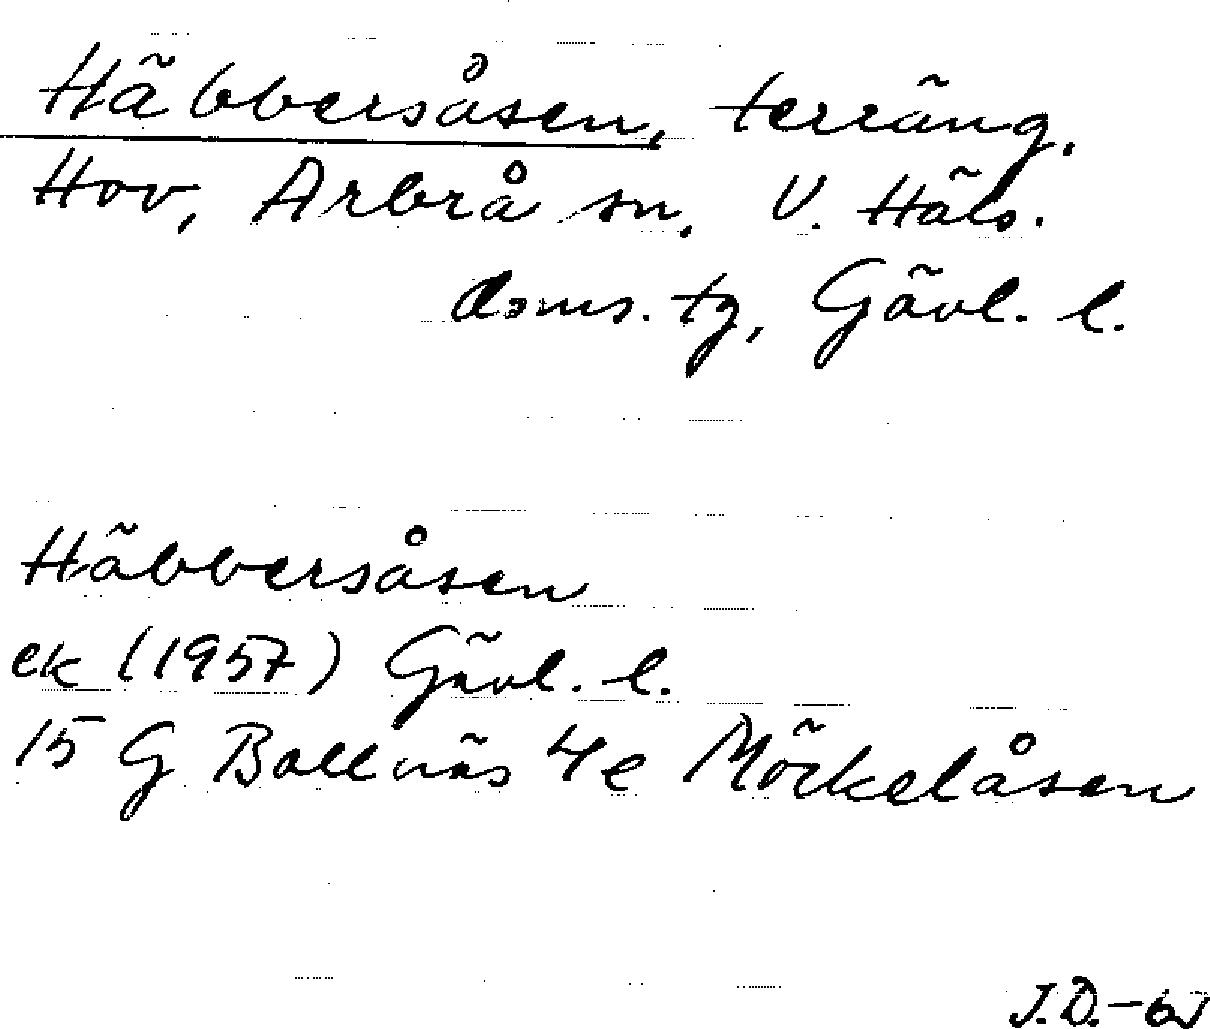 Häbbersåsen, terräng.
Hov, Arbrå sn, V. Häls.
doms. tg, Gävl. l.
Häbbersåsen
ek (1957) Gävl. l.
15 G Bollnäs 4e Möckelåsen
J.D.-